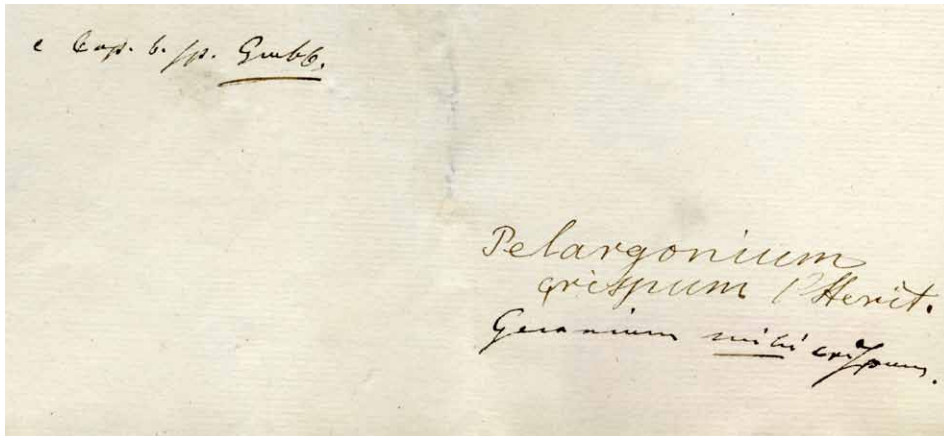 e Cap. b. sp. Grubb.
Pelargonium
crispum l'Herit.
Geranium mihi crispum.